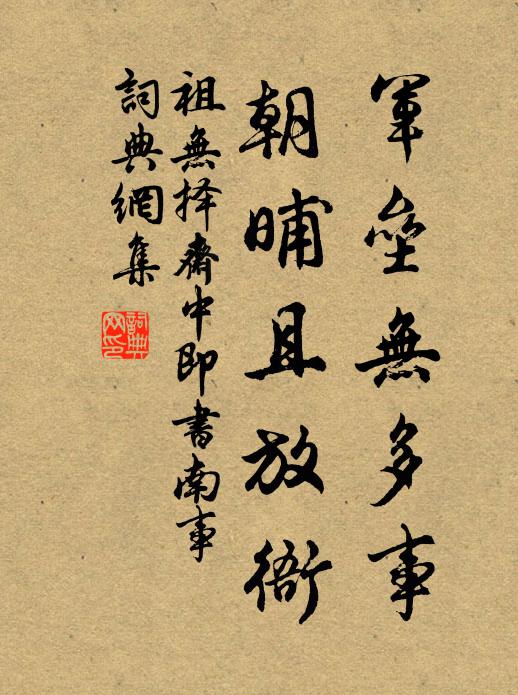 軍壘無多事
朝晡且放衙
祖無择齋中即書南事
詞典網集
詞典
网印